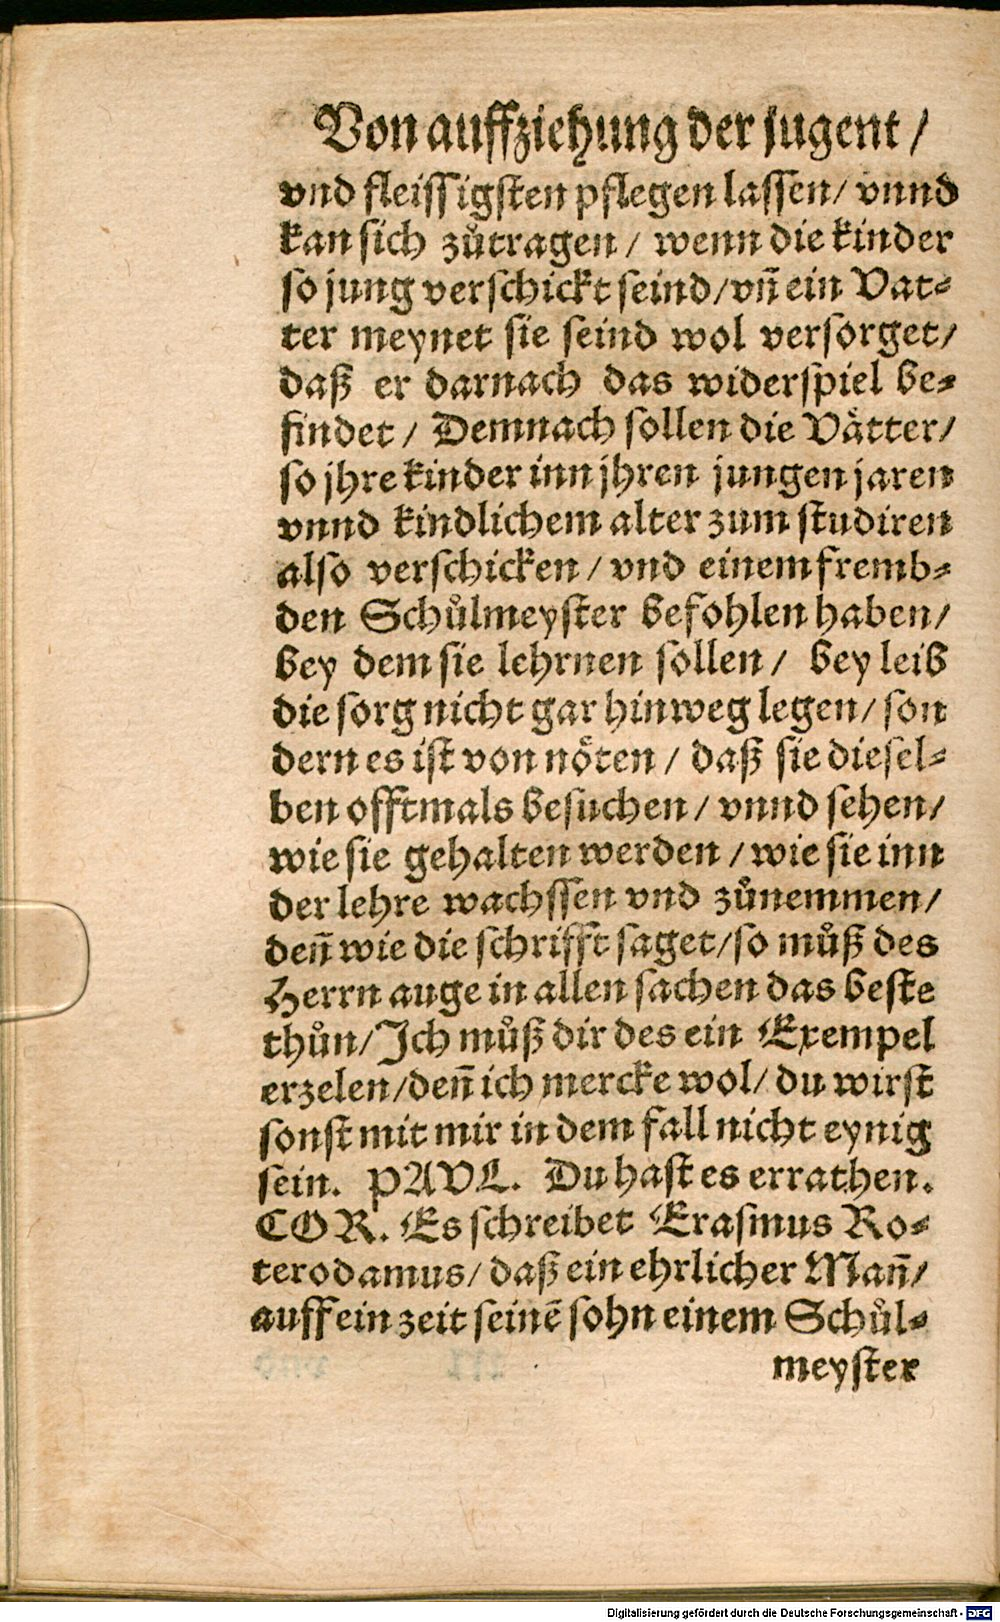 Von auffziehung der jugent /
vnd fleissigsten pflegen lassen / vnnd
kan sich zůtragen / wenn die kinder
so jung verschickt seind / vn̄ ein Vat-
ter meynet sie seind wol versorget /
daß er darnach das widerspiel be-
findet / Demnach sollen die Vätter /
so jhre kinder inn jhren jungen jaren
vnnd kindlichem alter zum studiren
also verschicken / vnd einem fremb-
den Schůlmeyster befohlen haben /
bey dem sie lehrnen sollen / bey leib
die sorg nicht gar hinweg legen / son
dern es ist von nöten / daß sie diesel-
ben offtmals besuchen / vnnd sehen /
wie sie gehalten werden / wie sie inn
der lehre wachssen vnd zůnemmen /
den̄ wie die schrifft saget / so můß des
Herrn auge in allen sachen das beste
thůn / Ich můß dir des ein Exempel
erzelen / den̄ ich mercke wol / du wirst
sonst mit mir in dem fall nicht eynig
sein. PAVL. Du hast es errathen.
COR. Es schreibet Erasmus Ro-
terodamus / daß ein ehrlicher Man̄ /
auff ein zeit seinē sohn einem Schůl-
meyster
Digitalisierung gefördert durch die Deutsche Forschungsgemeinschaft - DFG